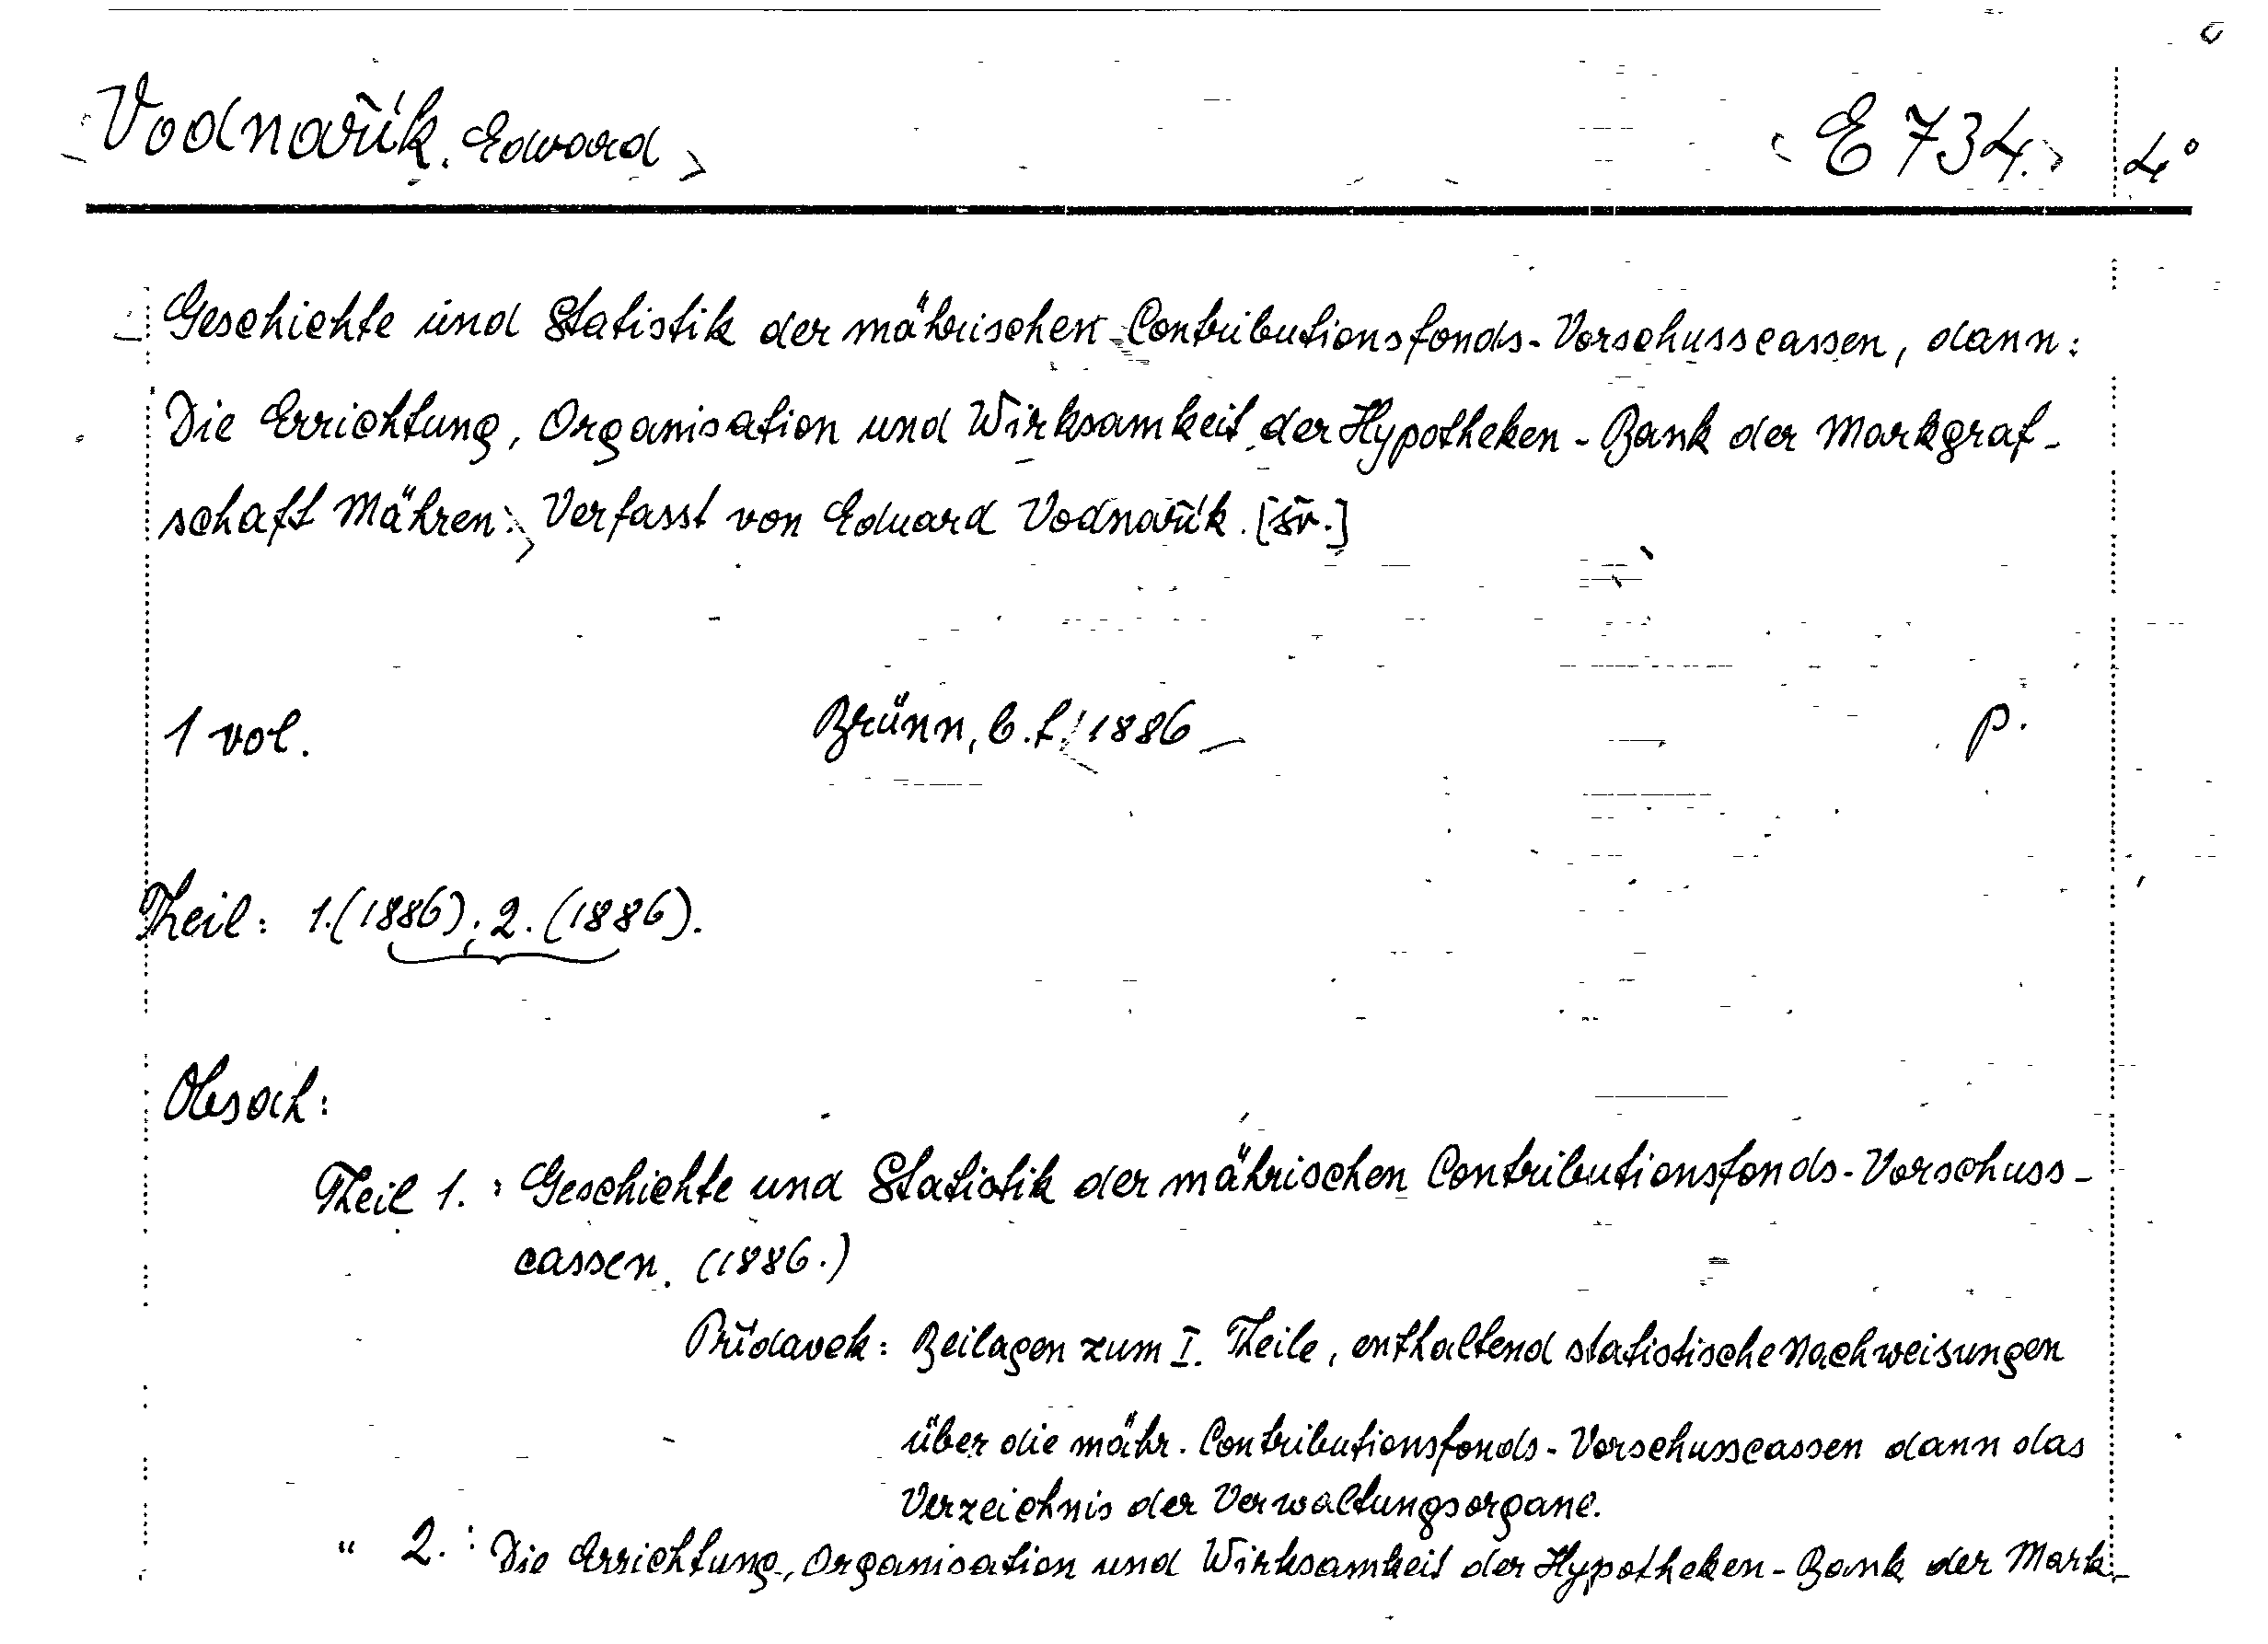 Vodnařík, Edward E 734. 4°
Geschichte und Statistik der mährischen Contributionsfonds-Vorschusscassen, dann:
Die Errichtung, Organisation und Wirksamkeit der Hypotheken-Bank der Markgraf-
schaft Mähren. Verfasst von Eduard Vodnařík.
1 vol. Brünn, b. t. 1886 p.
Theil: 1.(1886), 2.(1886).
Obsah:
Theil 1.: Geschichte und Statistik der mährischen Contributionsfonds-Vorschuss-
cassen. (1886.)
Přídavek: Beilagen zum I. Theile, enthaltend statistische Nachweisungen
über die mähr. Contributionsfonds-Vorschusscassen dann das
Verzeichnis der Verwaltungsorgane.
" 2.: Die Errichtung, Organisation und Wirksamkeit der Hypotheken-Bank der Mark-